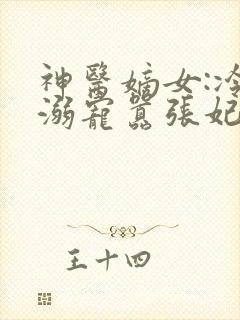 神醫嫡女:冷
溺寵囂張妃
王十四